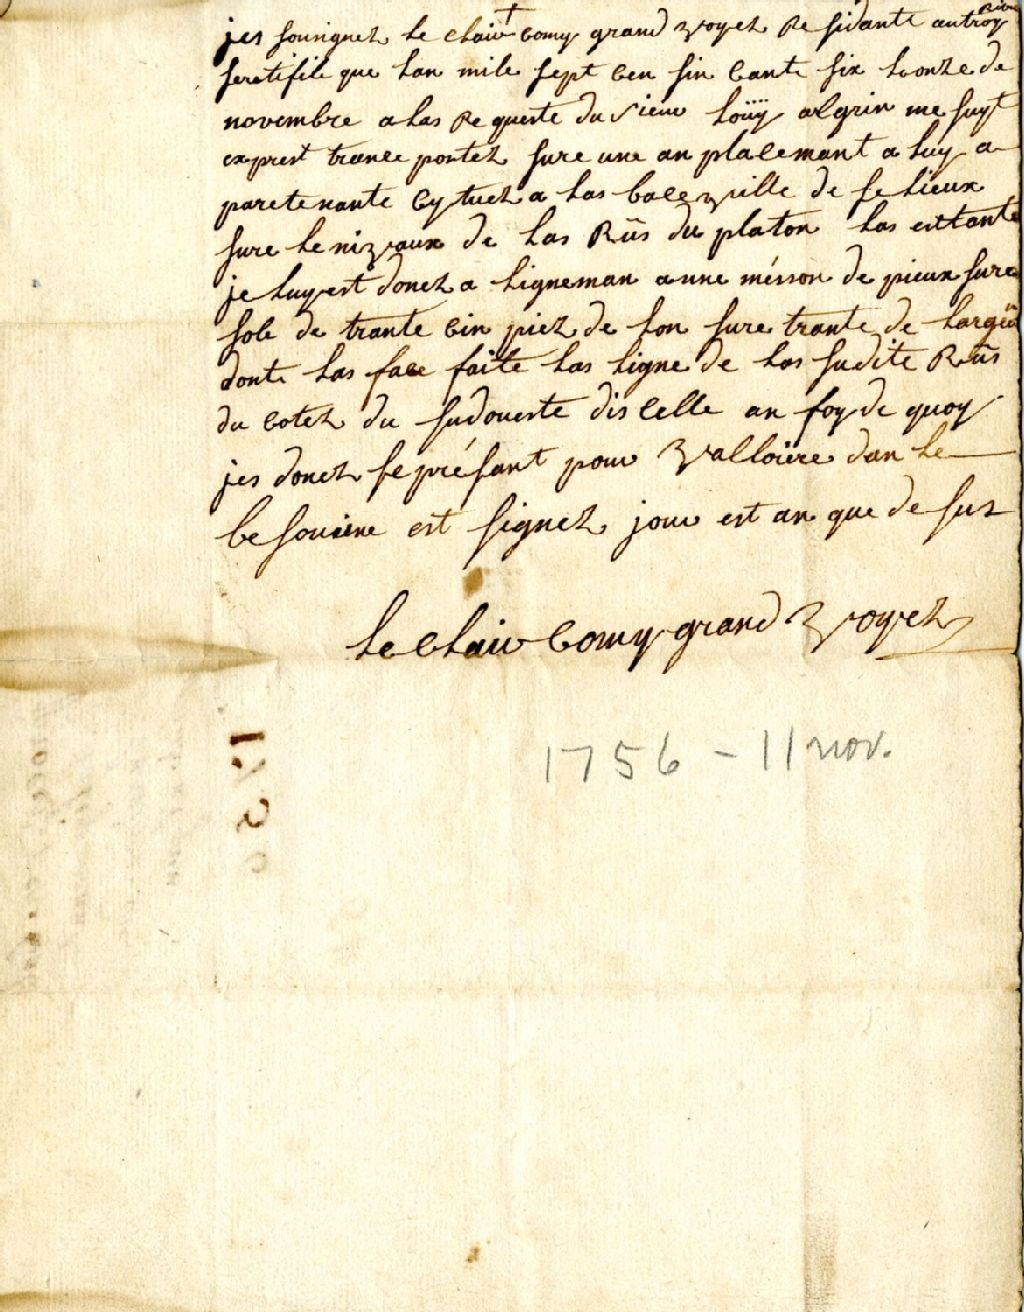 †
jes sousignez le clair comy grand voyez Residante autroy Rivie
sertifile que lan mile sept cen sin cante six lonze de
novembre a las Requeste du sieur Loüy algrin me suyt
exprest trance portez sure une an placemant a luy a
paretenante cytuez a las bace ville de se lieux
sure le nivaux de las Rüs du platon las estante
je luy est donez a ligneman a une mésson de pieux sure
sole de trante cin piez de lon sure trante de largeü
donte las face faite las ligne de las sudite Rüs
du cotez du sudoueste discelle an foy de quoy
jes donez se présant pour valloire dan le
besouiene est signez jour est an que desus
le clair comy grand voyez
1756 - 11 nov.